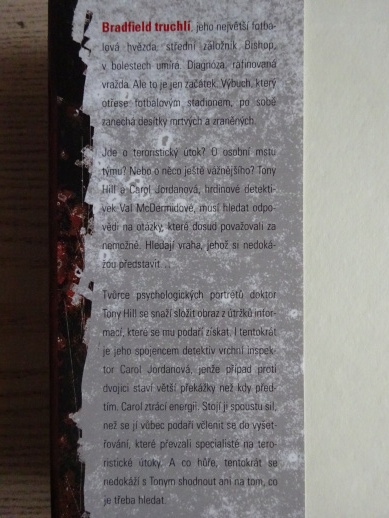 Bradfield truchlí, jeho největší fotbo-
lová hvězda, střední záložník Bishop,
v bolestech umírá. Diagnóza: rafinovaná
vražda. Ale to je jen začátek. Výbuch, který
otřese fotbalovým stadionem, po sobě
zanechá desítky mrtvých a zraněných.
Jde o teroristický útok? O osobní mstu
týmu? Nebo o něco ještě vážnějšího? Tony
Hill a Carol Jordanová, hrdinové detekti-
vek Val McDermidové, musí hledat odpo-
vědi na otázky, které dosud považovali za
nemožné. Hledají vraha, jehož si nedoká-
žou představit . . .
Tvůrce psychologických portrétů doktor
Tony Hill se snaží složit obraz z útržků infor-
mací, které se mu podaří získat. I tentokrát
je jeho spojencem detektiv vrchní inspek-
tor Carol Jordanová, jenže případ proti
dvojici staví větší překážky než kdy před-
tím. Carol ztrácí energii. Stojí ji spoustu sil,
než se jí vůbec podaří včlenit se do vyšet-
řování, které převzali specialisté na tero-
ristické útoky. A co hůře, tentokrát se
nedokáží s Tonym shodnout ani na tom, co
je třeba hledat.